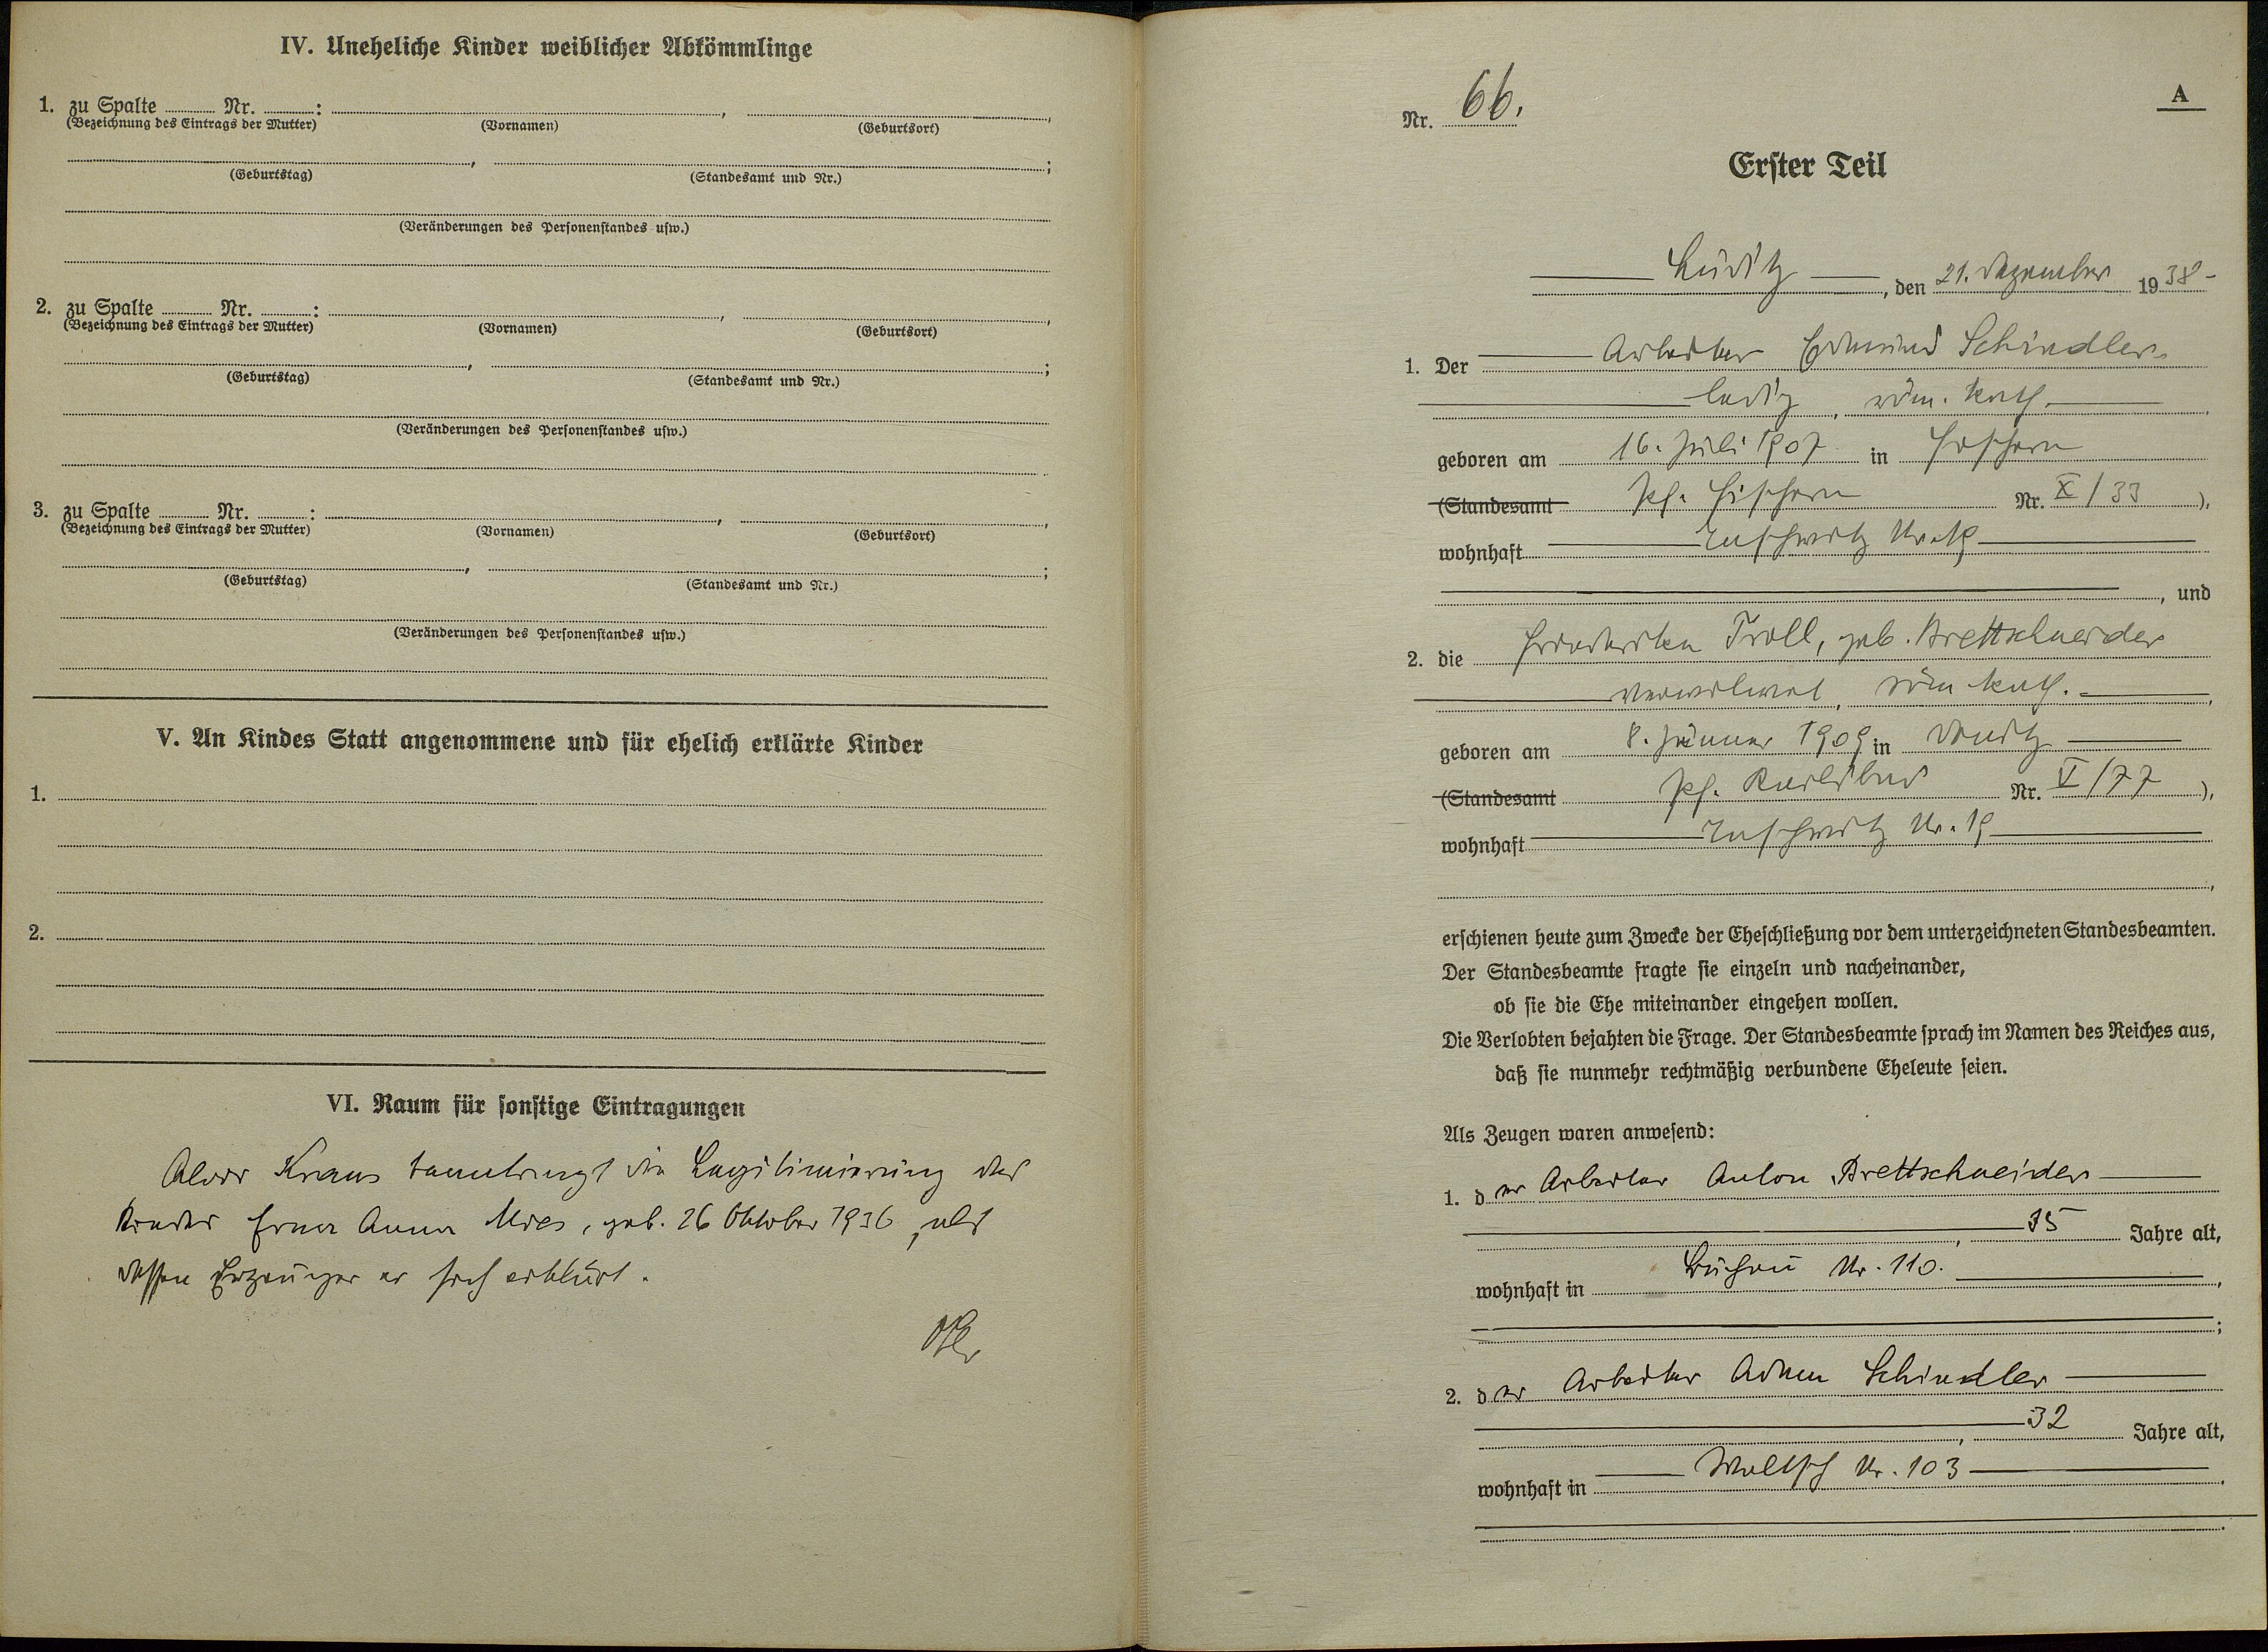 IV. Uneheliche Kinder weiblicher Abkömmlinge
1. zu Spalte Nr. : , ,
(Bezeichnung des Eintrags der Mutter) (Vornamen) (Geburtsort)
, ;
(Geburtstag) (Standesamt und Nr.)
(Veränderungen des Personenstandes usw.)
2. zu Spalte Nr. : , ,
(Bezeichnung des Eintrags der Mutter) (Vornamen) (Geburtsort)
, ;
(Geburtstag) (Standesamt und Nr.)
(Veränderungen des Personenstandes usw.)
3. zu Spalte Nr. : , ,
(Bezeichnung des Eintrags der Mutter) (Vornamen) (Geburtsort)
, ;
(Geburtstag) (Standesamt und Nr.)
(Veränderungen des Personenstandes usw.)
V. An Kindes Statt angenommene und für ehelich erklärte Kinder
1.
2.
VI. Raum für sonstige Eintragungen
Kraus beantragt die Legitimierung des
Kindes Erna Anna, geb. 26 Oktober 1936, als
dessen Erzeuger er sich erklärt.
Nr. 66.
A
Erster Teil
Luditz, den 21. Dezember 1938
1. Der Arbeiter Schindler
ledig, röm. kath.
geboren am 16. Juli 1907 in
(Standesamt Pf. Nr. X/33),
wohnhaft Nr. 19
, und
2. die Troll, geb. Brettschneider
verwitwet, röm kath.
geboren am 8. Jänner 1909 in
(Standesamt Pf. Nr. V/77),
wohnhaft Nr. 19
,
erschienen heute zum Zwecke der Eheschließung vor dem unterzeichneten Standesbeamten.
Der Standesbeamte fragte sie einzeln und nacheinander,
ob sie die Ehe miteinander eingehen wollen.
Die Verlobten bejahten die Frage. Der Standesbeamte sprach im Namen des Reiches aus,
daß sie nunmehr rechtmäßig verbundene Eheleute seien.
Als Zeugen waren anwesend:
1. der Arbeiter Anton Brettschneider
, 35 Jahre alt,
wohnhaft in Buchau Nr. 110.,
;
2. der Arbeiter Schindler
, 32 Jahre alt,
wohnhaft in Nr. 103.